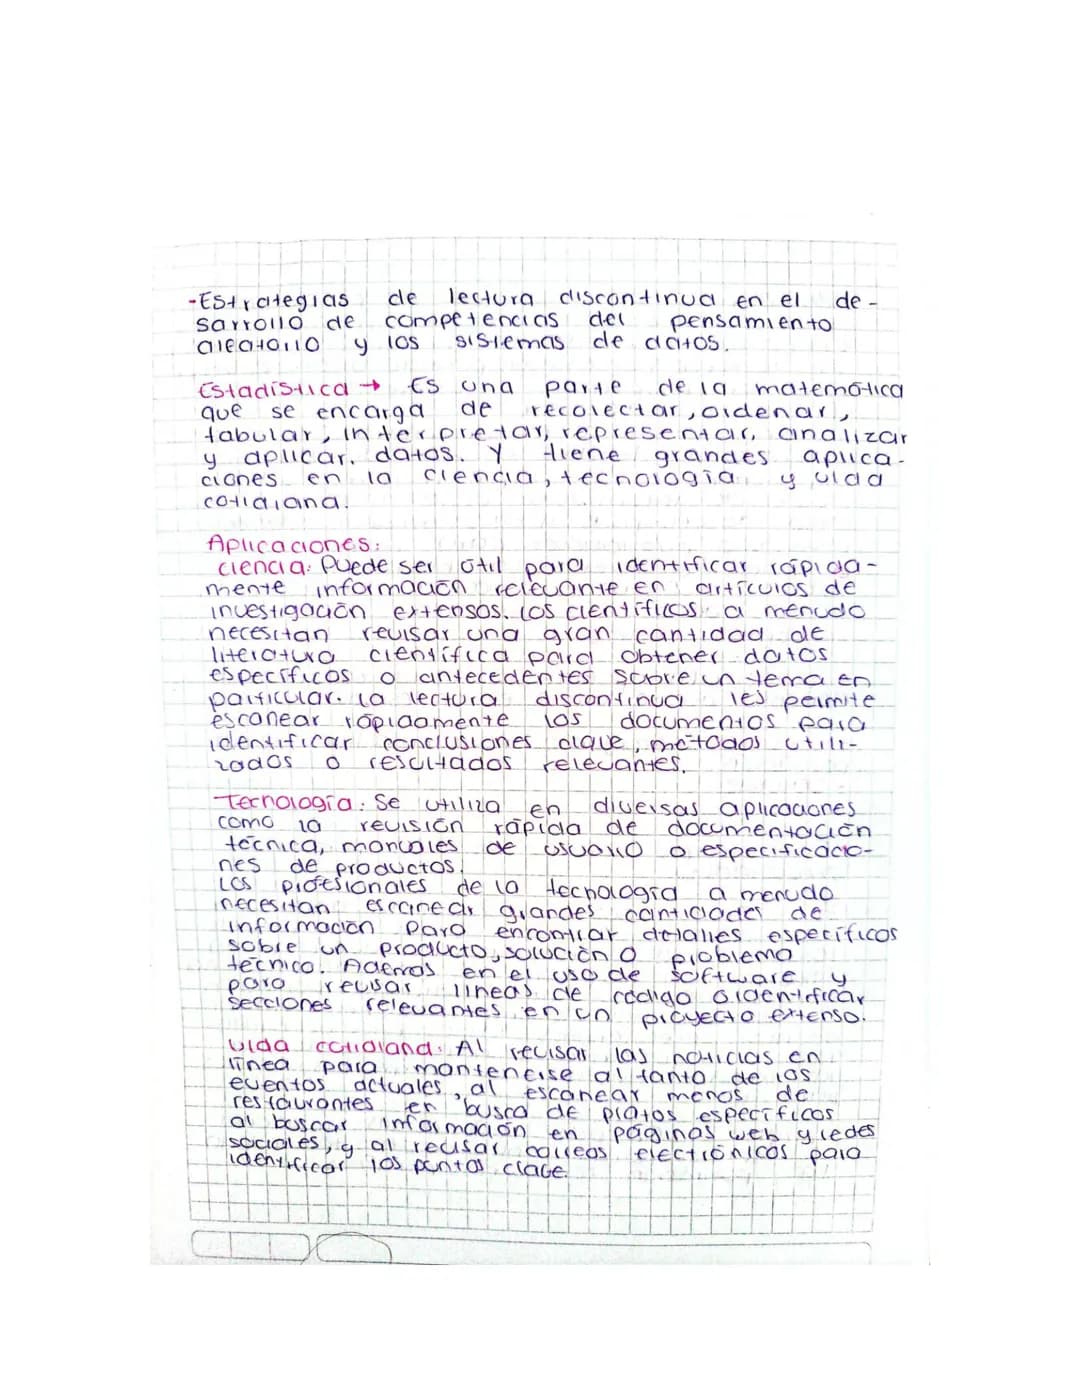 -Estrategias de lectura discontinua en el de-
sarrollo de competencias del pensamiento
aleatorio y los sistemas de datos.
Estadística → Es una parte de la matemática
que se encarga de recolectar, ordenar,
tabular, interpretar, representar, analizar
y aplicar datos. Y tiene grandes aplica-
ciones en la ciencia, tecnología y vida
cotidiana.
Aplicaciones:
ciencia: Puede ser útil para identificar rápida-
mente información relevante en artículos de
investigación extensos. Los científicos a menudo
necesitan revisar una gran cantidad de
literatura científica para obtener datos
específicos o antecedentes sobre un tema en
particular. La lectura discontinua les permite
escanear rápidamente los documentos para
identificar conclusiones clave, métodos utili-
zados o resultados relevantes.
Tecnología: Se utiliza en diversas aplicaciones
como la revisión rápida de documentación
técnica, manuales de usuario o especificacio-
nes de productos.
Los profesionales de la tecnología a menudo
necesitan escanear grandes cantidades de
información para encontrar detalles específicos
sobre un producto, solución o problema
técnico. Además en el uso de software y
para revisar líneas de código o identificar
secciones relevantes en un proyecto extenso.
Vida cotidiana: Al revisar las noticias en
línea para mantenerse al tanto de los
eventos actuales, al escanear menos de
restaurantes en busca de platos específicos
al buscar información en páginas web y redes
sociales, y al revisar correos electrónicos para
identificar los puntos clave.